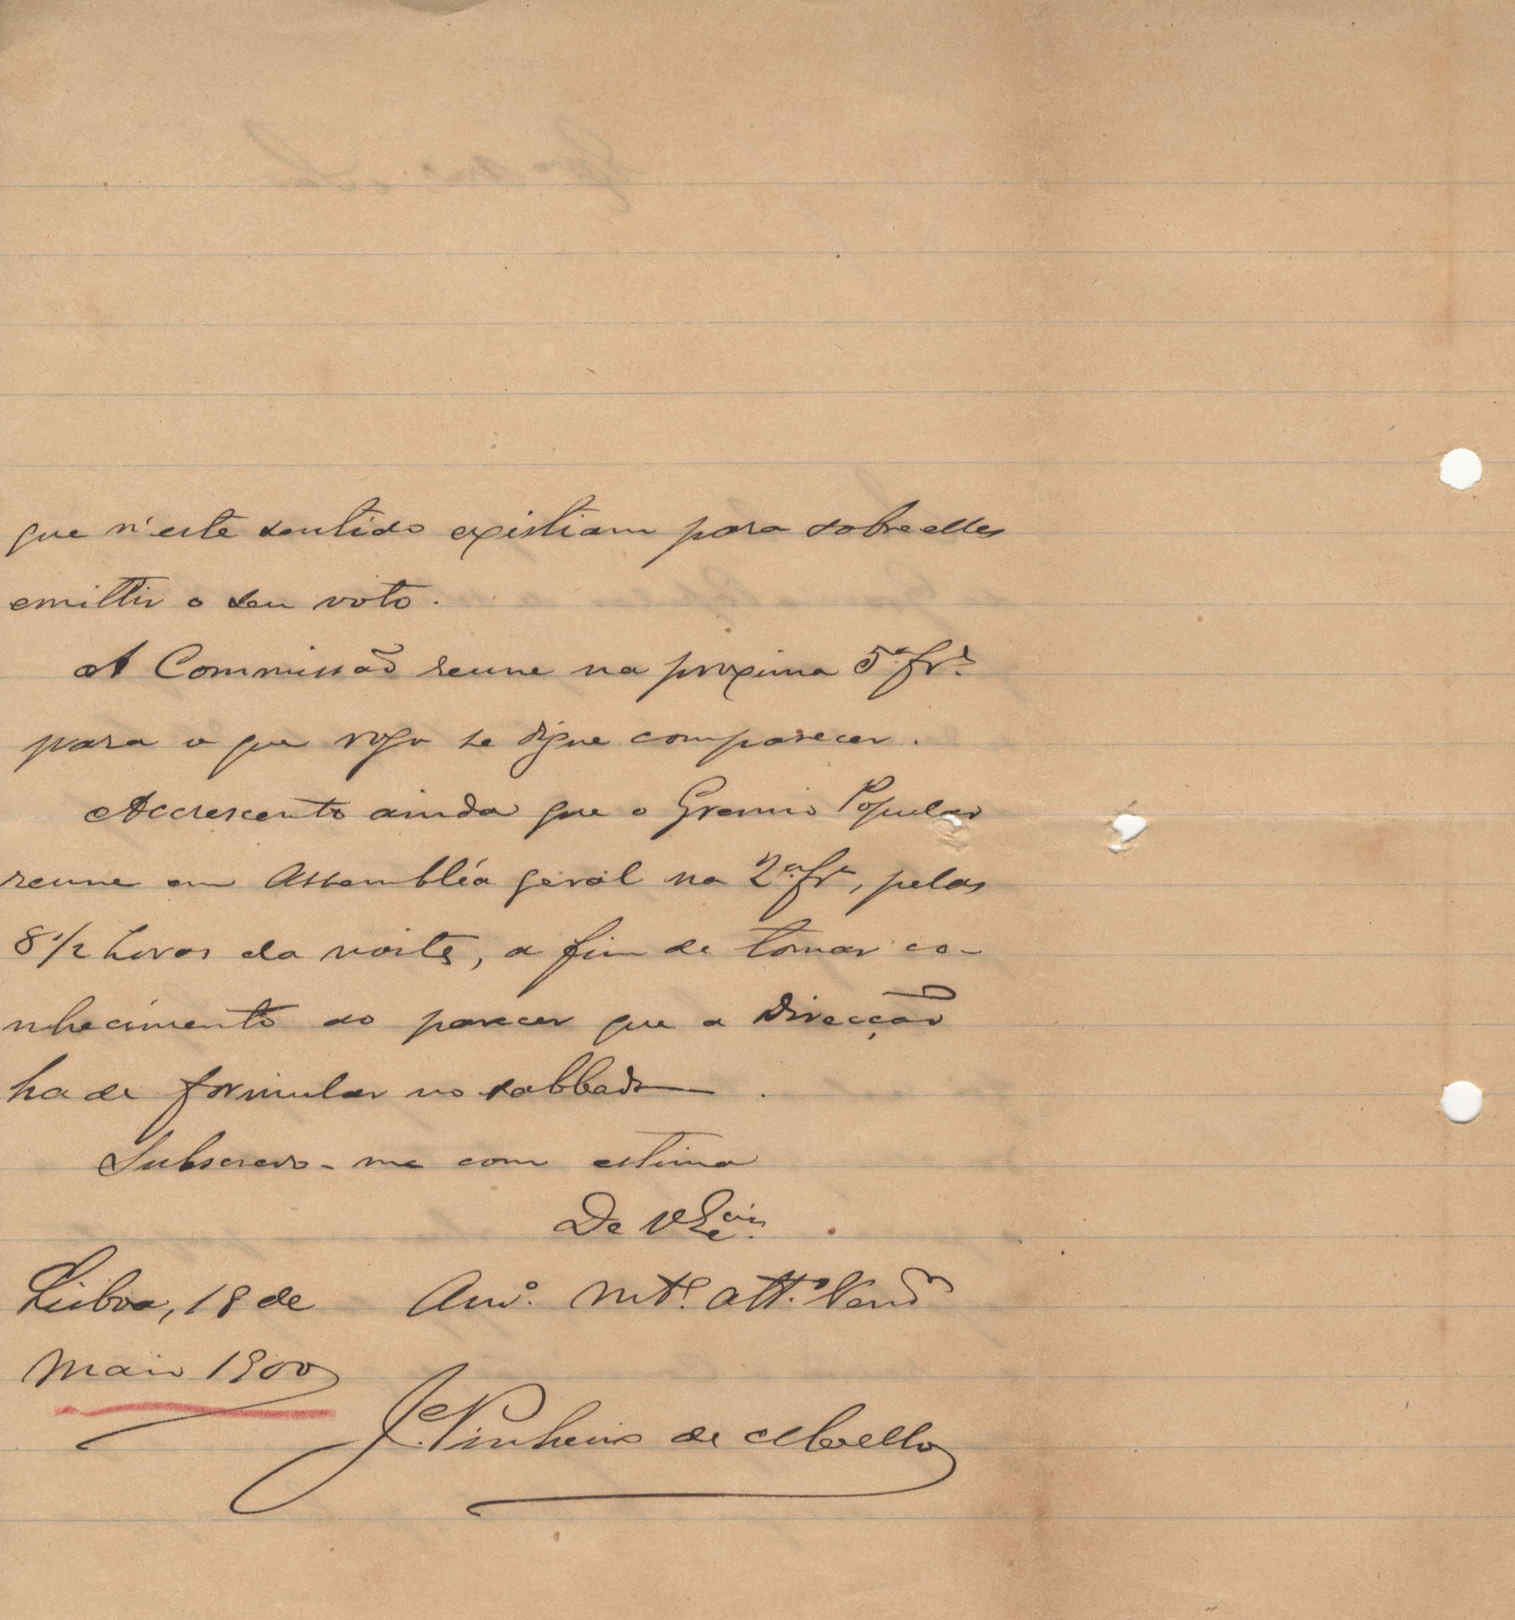 que n'este sentido existiam para sobre elles
emittir o seu voto.
A Commissão reune na proxima 5ª frª
para o que rogo se digne comparecer.
Accrescento ainda que o Gremio Popular
reune em Assembléa geral na 2ª frª, pelas
8 1/2 horas da noite, a fim de tomar co-
nhecimento do parecer que a Direcção
ha de formular no sabbado.
Subscrevo-me com estima
De V. Exciª
Lisboa, 18 de
Amº. mtº. attº. Venºr
Maio 1900
J. Pinheiro de Mello